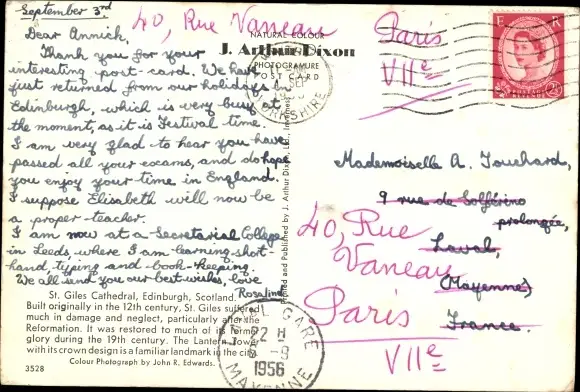 September 3rd
40, Rue Vaneau
Paris
VIIe
Dear Annick,
Thank you for your
interesting post-card. We have
just returned from our holidays in
Edinburgh, which is very busy at
the moment, as it is Festival time.
I am very glad to hear you have
passed all your exams, and do hope
you enjoy your time in England.
I suppose Elisabeth will now be
a proper teacher.
I am now at a Secretarial College
in Leeds, where I am learning short-
hand, typing and book-keeping.
We all send you our best wishes, love
Rosaline
St. Giles Cathedral, Edinburgh, Scotland.
Built originally in the 12th century, St. Giles suffered
much in damage and neglect, particularly after the
Reformation. It was restored to much of its former
glory during the 19th century. The Lantern Tower
with its crown design is a familiar landmark in the city.
Colour Photograph by John R. Edwards.
3528
NATURAL COLOUR
J. Arthur Dixon
PHOTOGRAVURE
POST CARD
Printed and Published by J. Arthur Dixon Ltd., Inverness
SEP
YORKSHIRE
E R
2½ D
Mademoiselle A. Touchard,
9 rue de Solférino
prolongée,
Laval,
(Mayenne)
France.
40, Rue
Vaneau
Paris
VIIe
LAVAL GARE
22 H
5-9
1956
MAYENNE